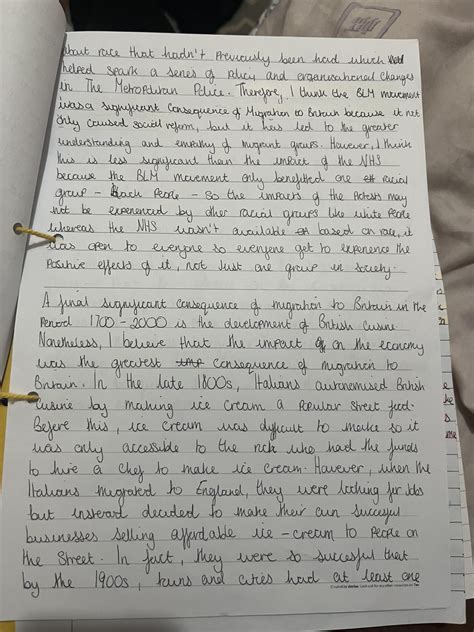 about race that hadn't previously been had which
helped spark a series of policy and organisational changes
in The Metropolitan Police. Therefore, I think the BLM movement
was a significant consequence of Migration to Britain because it not
only caused social reform, but it has led to the greater
understanding and empathy of migrant groups. However, I think
this is less significant than the impact of the NHS
because the BLM movement only benefitted one racial
group - black people - so the impacts of the protests may
not be experienced by other racial groups like white people
whereas the NHS wasn't available based on race, it
was open to everyone so everyone get to experience the
positive effects of it, not just one group in society.
A final significant consequence of migration to Britain in the
period 1700-2000 is the development of British cuisine
Nonetheless, I believe that the impact on the economy
was the greatest consequence of migration to
Britain. In the late 1800s, Italians British
cuisine by making ice cream a popular street food.
Before this, ice cream was difficult to make so it
was only accessible to the rich who had the funds
to hire a chef to make ice cream. However, when the
Italians migrated to England, they were looking for jobs
but instead decided to make their own succesful
businesses selling affordable ice-cream to people on
the street. In fact, they were so succesful that
by the 1900s, towns and cities had at least one